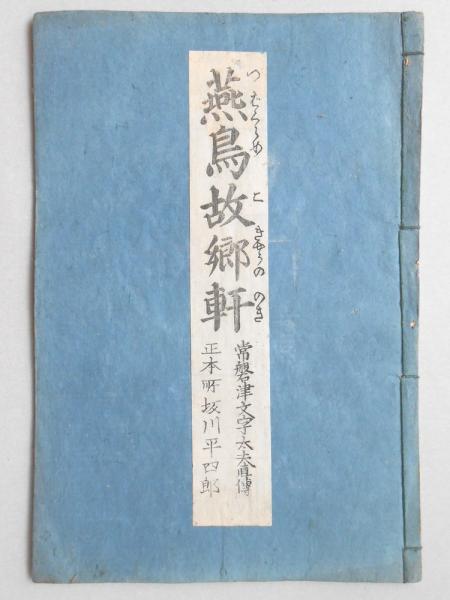 燕鳥故郷軒
つばくらめ こきやうの のき
常磐津文字太夫直傳
正本所坂川平四郎